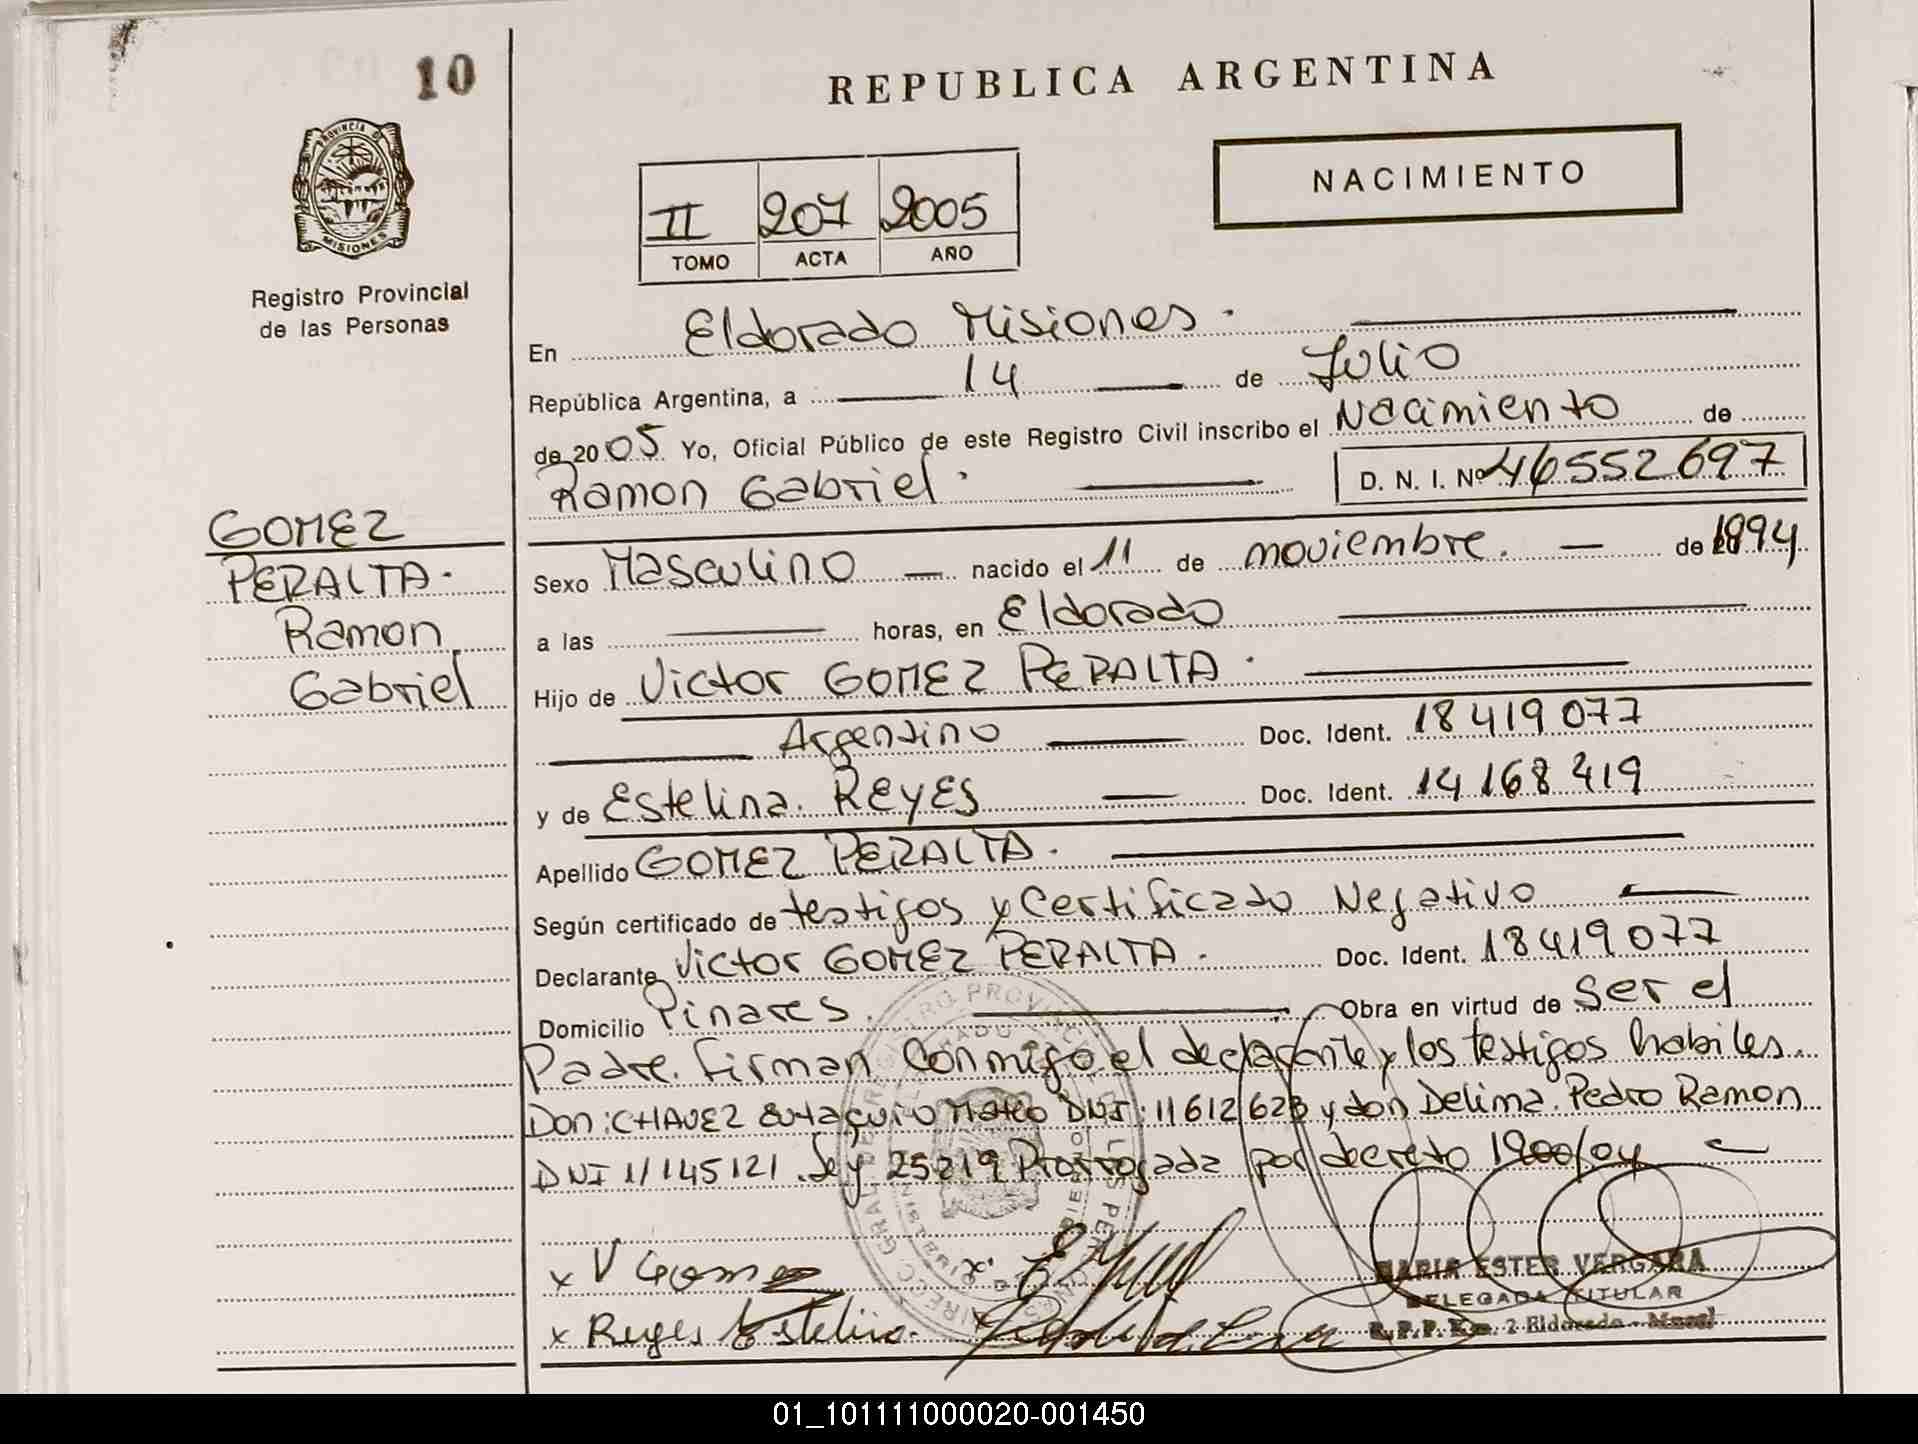 10
REPUBLICA ARGENTINA
PROVINCIA DE
MISIONES
NACIMIENTO
II 207 2005
TOMO ACTA AÑO
Registro Provincial
de las Personas
En Eldorado Misiones.
República Argentina, a 14 de Julio
de 2005 Yo, Oficial Público de este Registro Civil inscribo el Nacimiento de
Ramon Gabriel. D. N. I. Nº 46552697
GOMEZ
PERALTA.
Ramon
Gabriel
Sexo Masculino nacido el 11 de noviembre. de 1994
a las horas, en Eldorado
Hijo de Victor GOMEZ PERALTA.
Argentino Doc. Ident. 18419077
y de Estelina. REYES Doc. Ident. 14168419
Apellido GOMEZ PERALTA.
Según certificado de testigos y Certificado Negativo
Declarante Victor GOMEZ PERALTA. Doc. Ident. 18419077
Domicilio Pinares. Obra en virtud de Ser el
Padre. Firman Conmigo el declarante y los testigos habiles.
Don: CHAVEZ Eutaquio Mateo DNI: 11612623 y don Delima. Pedro Ramon
DNI 11145121. Ley 25219 Prorrogada por decreto 1900/04
x V Gomez x
x Reyes Estelina.
MARIA ESTER VERGARA
DELEGADA TITULAR
R.P.P. Km. 2 Eldorado - Mnes
01_101111000020-001450